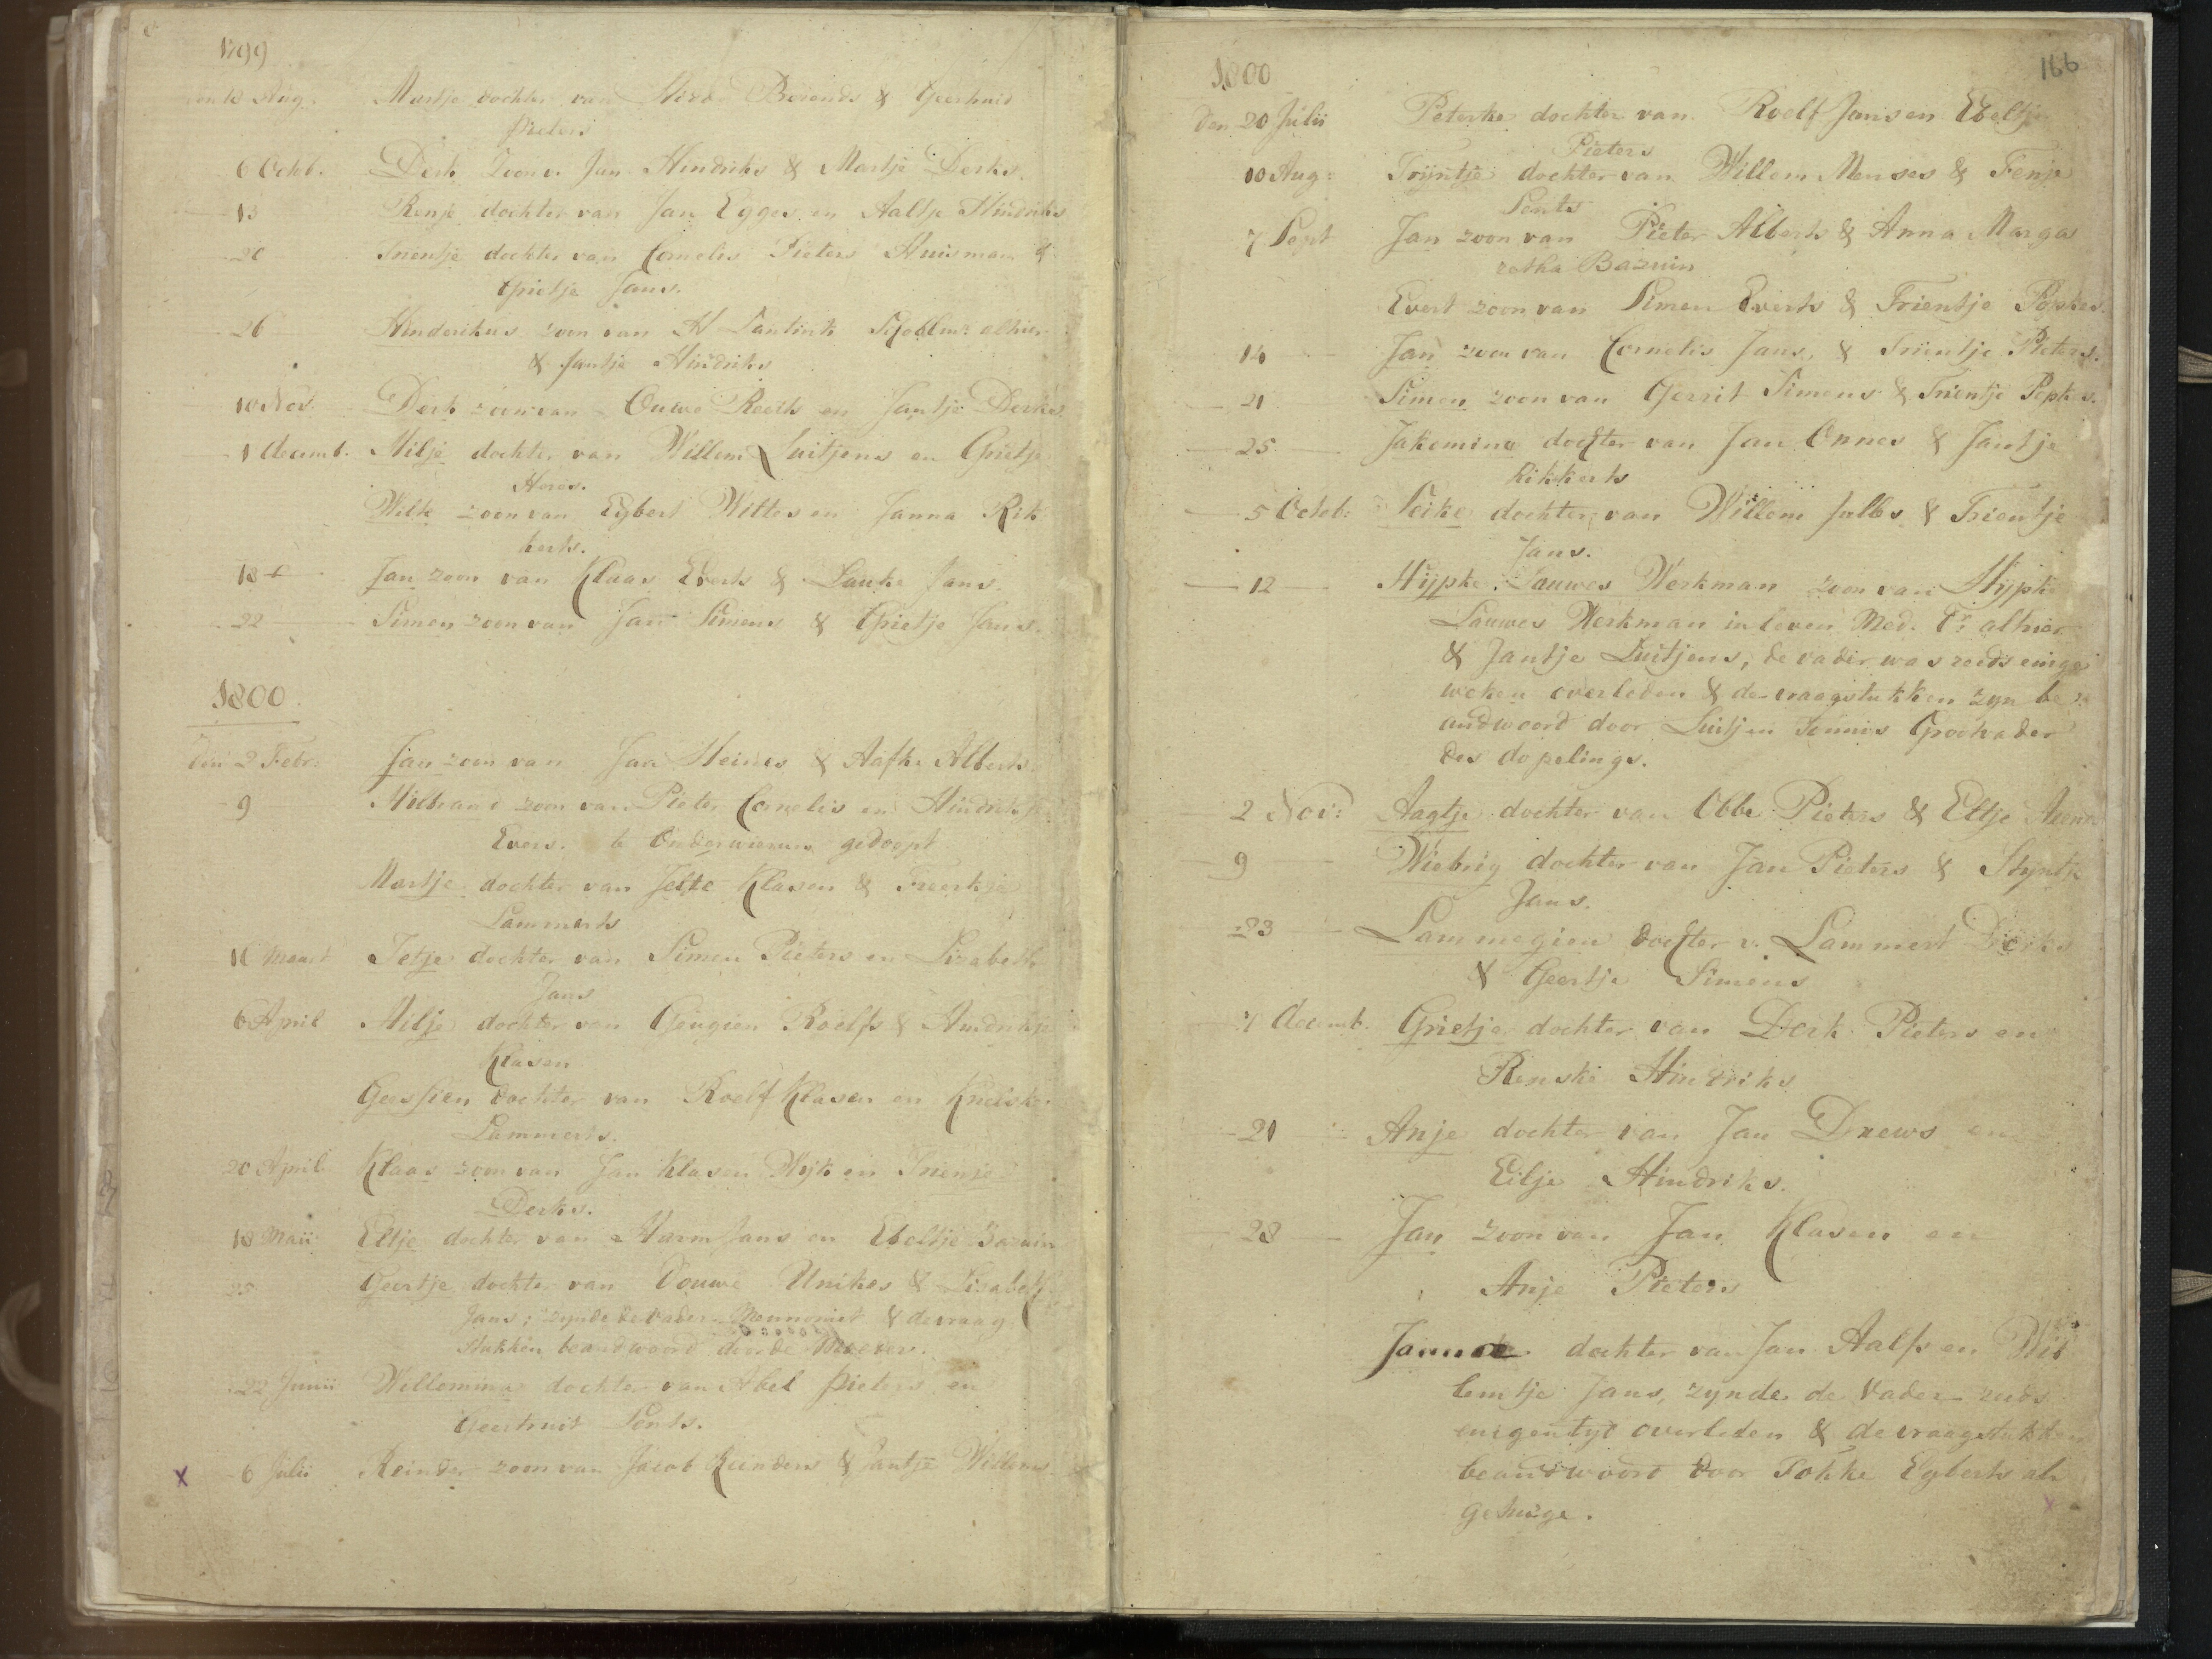 1799
den 18 Aug. Martje dochter van Berends & Geertruid
Pieters
6 Octob. Derk Zoon v. Jan Hindriks & Martje Derks.
13 Renje dochter van Jan Egges en Aaltje Hindriks
20 Trientje dochter van Cornelis Pieters Huisman &
Grietje Jans.
26 Hinderikus zoon van H Santink Schoolmr. alhier
& Jantje Hindriks
10 Nov. Derk zoon van Ouwe Reerts en Jantje Derks
1 decemb. Hilje dochter van Willem Luitjens en Grietje
Heres.
Wilte zoon van Egbert Wiltes en Janna Rik
kerts.
18 Jan zoon van Klaas Everts & Lauke Jans.
22 Simon zoon van Jan Simens & Grietje Jans.
1800.
den 2 Febr. Jan zoon van Jan Heines & Aafke Alberts.
9 Hilbrand zoon van Pieter Cornelis en Hindrikje
Evers. te Onderwierum gedoopt
Martje dochter van Jelte Klasen & Freerkje
Lammerts
16 Maart Jetje dochter van Simen Pieters en Lisabeth
Jans
6 April Hilje dochter van Geugien Roelfs & Hindrikje
Klasen
Geessien dochter van Roelf Klasen en Kneiske
Lammerts.
20 April Klaas zoon van Jan Klasen Wijk en Trienje
Derks.
18 Maii Eltje dochter van Harm Jans en Ebeltje Bazuin
25 Geertje dochter van Douwe Unikes & Lisabeth
Jans; zynde de vader Mennonist & de vraag
stukken beandwoord door de Moeder.
22 Junii Willemina dochter van Abel Pieters en
Geertruit Sents.
x 6 Julii Reinder zoon van Jacob Reinders & Jantje Willems
166
1800
den 20 Julii Peterke dochter van Roelf Jans en Ebeltje
Pieters
10 Aug: Trijntje dochter van Willem Menses & Fenje
Sents
7 Sept Jan zoon van Pieter Alberts & Anna Marga
retha Bazuin
Evert zoon van Simen Everts & Trientje Popkes.
14 Jan zoon van Cornelis Jans, & Trientje Pieters.
21 Simen zoon van Gerrit Simens & Trientje Popkes.
25 Jakomina dochter van Jan Onnes & Jantje
Rikkerts
5 Octob: Seike dochter van Willem Jalbs & Trientje
Jans.
12 Hijpke Lauwes Werkman zoon van Hijpke
Lauwes Werkman in leven Med. Dr. alhier
& Jantje Luitjens, de vader was reeds einige
weken overleden & de vraagstukken zyn be
andwoord door Luitjen Tonnis Grootvader
des dopelings.
2 Nov: Aagtje dochter van Obbe Pieters & Eltje Arends
9 Wiebrig dochter van Jan Pieters & Styntje
Jans.
23 Lammegien dochter v. Lammert Derks
& Geertje Simens
7 decemb. Grietje dochter van Derk Pieters en
Renske Hindriks
21 Anje dochter van Jan Drews en
Eilje Hindriks.
28 Jan zoon van Jan Klasen en
Anje Pieters
Janna dochter van Jan Aalfs en Wil
lemtje Jans, zynde de Vader reeds
enigen tyd overleden & de vraagstukken
beandwoord door Fokke Egberts als
getuige.
x